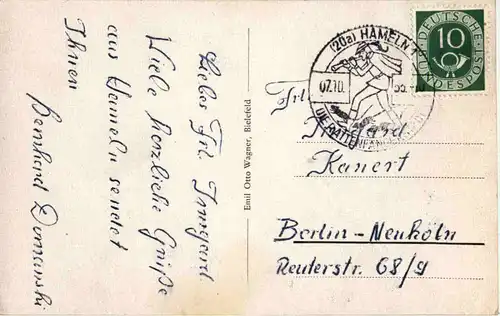 Liebes Frl. Irmgard
Viele herzliche Grüße
aus Hameln sendet
Ihnen
Bernhard Domanski
Emil Otto Wagner, Bielefeld
(20a) HAMELN
07.10.
DIE RATTENFÄNGER
DEUTSCHE
BUNDESPOST
10
Frl.
Irmgard
Kanert
Berlin-Neuköln
Reuterstr. 68/9